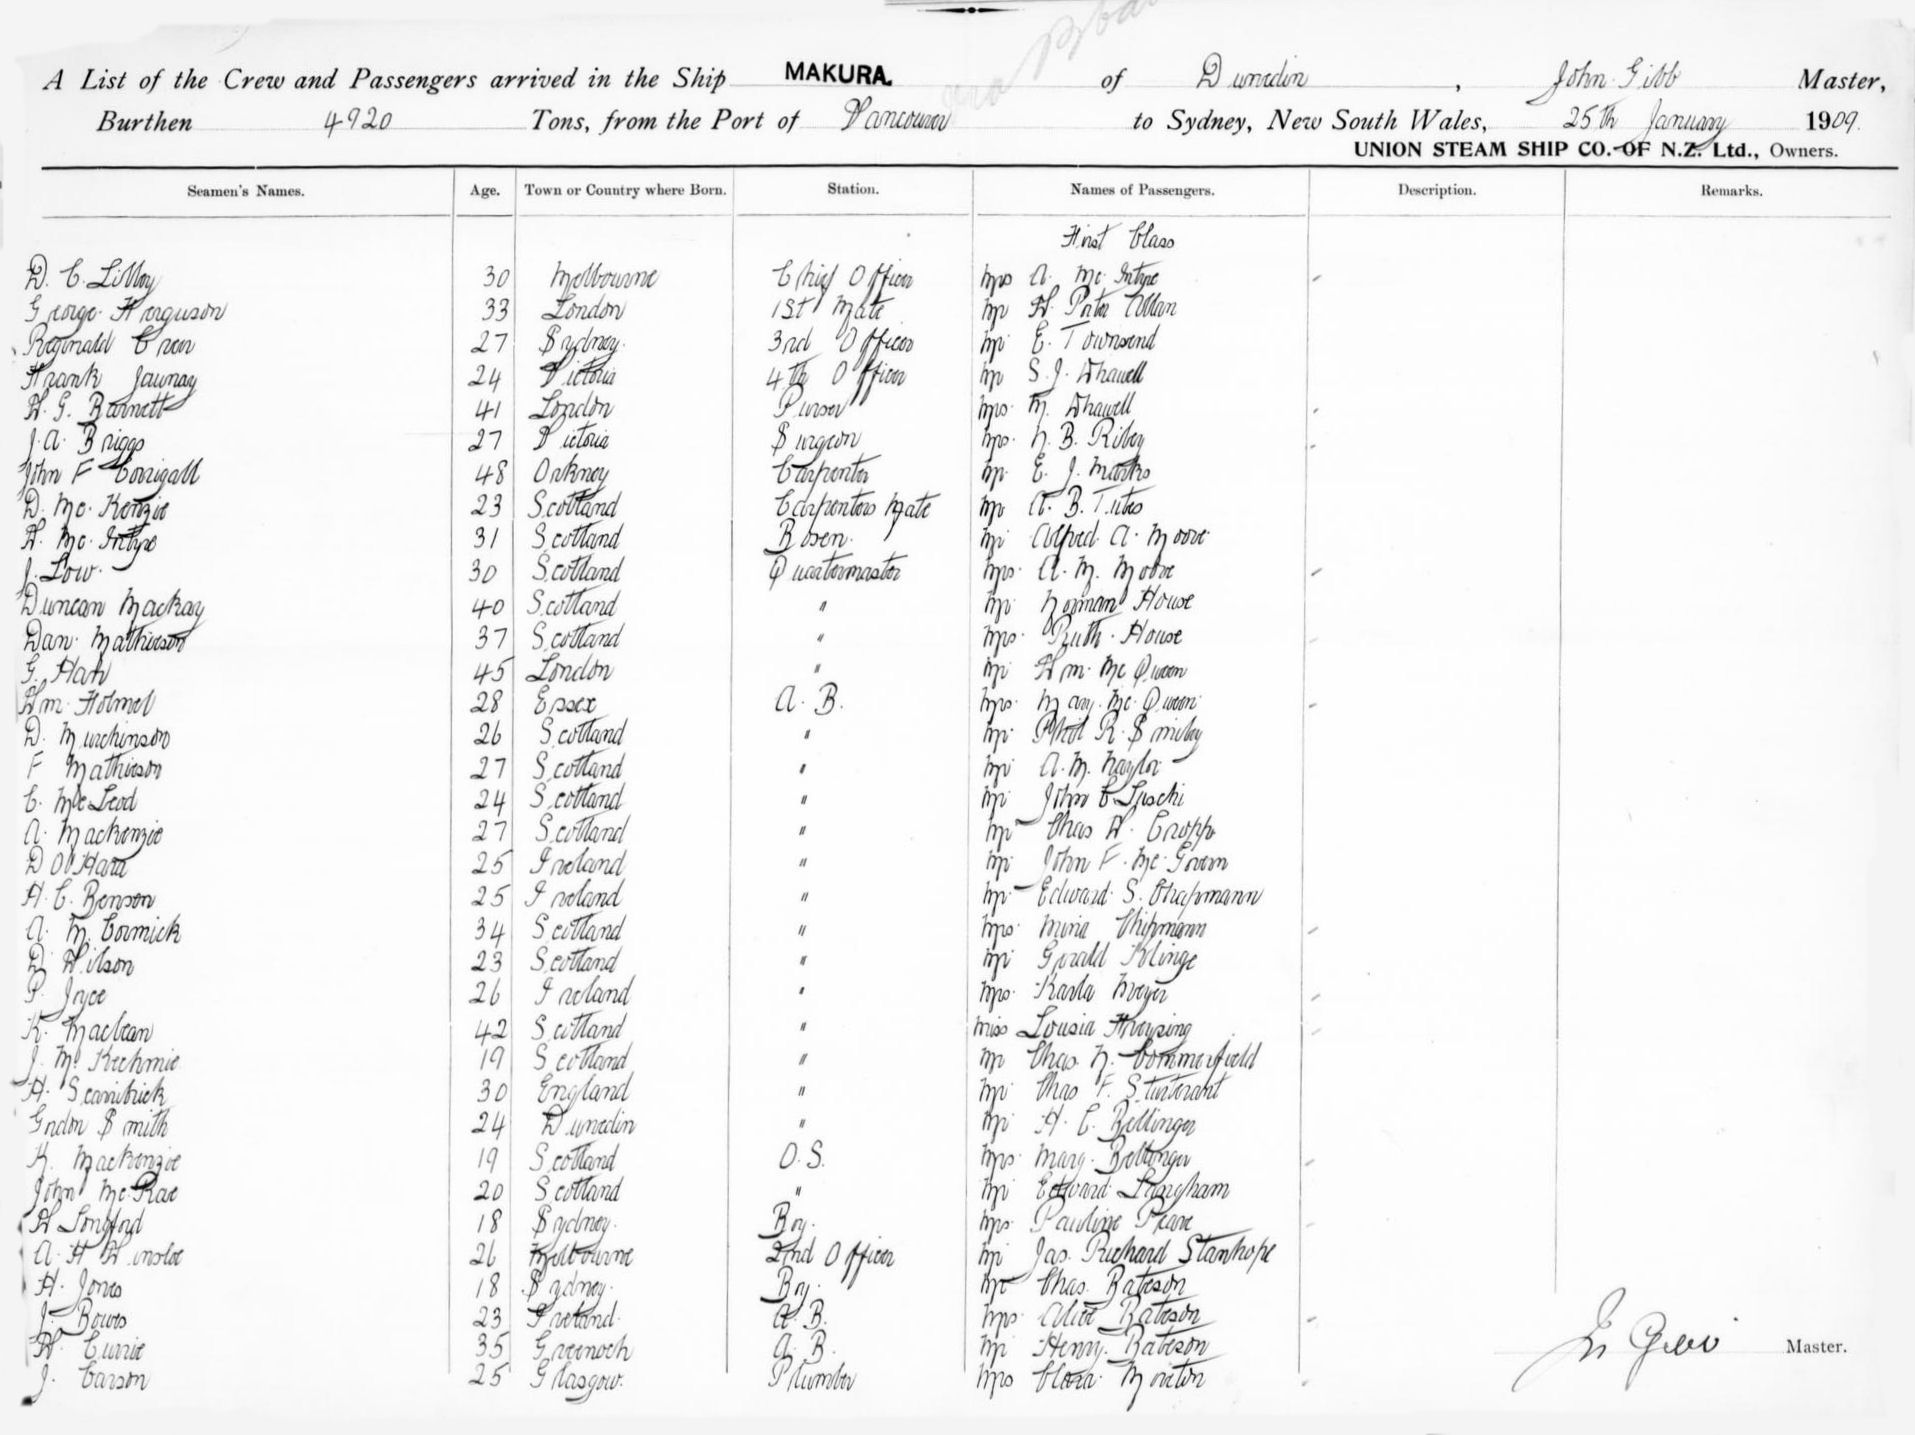 A List of the Crew and Passengers arrived in the Ship MAKURA. of Dunedin, John Gibb Master,
Burthen 4920 Tons, from the Port of Vancouver to Sydney, New South Wales, 25th January 1909.
UNION STEAM SHIP CO. OF N.Z. Ltd., Owners.
Seamen's Names. Age. Town or Country where Born. Station. Names of Passengers. Description. Remarks.
First Class
D. C. Lilley 30 Melbourne Chief Officer Mrs A. Mc. Intyre
George Ferguson 33 London 1st Mate Mr W. Peter Allan
Reginald Crew 27 Sydney. 3rd Officer Mr E. Townsend
Frank Jaunay 24 Victoria 4th Officer Mr S. J. Thawell
W. G. Barnett 41 London Purser Mrs. M. Thawell
J. A. Briggs 27 Victoria Surgeon Mrs. N. B. Riley
John F Corrigall 48 Orkney Carpenter Mr. E. J. Marks
D. Mc. Kenzie 23 Scotland Carpenters Mate Mr A. B. Tites
W. Mc. Intyre 31 Scotland Bosen. Mr Alfred. A. Moore
J. Low. 30 Scotland Quartermaster Mrs. A. M. Moore
Duncan Mackay 40 Scotland " Mr Norman House
Dan. Mathieson 37 Scotland " Mrs. Ruth. House
G. 45 London " Mr Wm. Mc Queen
Wm. Holmel 28 Essex A. B. Mrs. Mary. Mc. Queen
D. Murchinson 26 Scotland " Mr. Phil R. Smiley
F Mathieson 27 Scotland " Mr A. M. Naylor
C. McLeod 24 Scotland " Mr John C
A. Mackenzie 27 Scotland " Mr Chas W. Cropp
D O'Hara 25 Ireland " Mr John F. Mc. Govern
H. C. Benson 25 Ireland " Mr Edward. S. Chapmann
A. M. Cormick 34 Scotland " Mrs. Mina Chipmann
D Wilson 23 Scotland " Mr Gerald Klinge
P. Joyce 26 Ireland " Mrs. Karla Meyer
K. Maclean 42 Scotland " Miss Lousia
J. Mc. Kechmie 19 Scotland " Mr Chas. N. Commerfield
H. Scarisbrick 30 England " Mr Chas F. Sturtevant
Gordon Smith 24 Dunedin " Mr H. C. Bellinger
K. Mackenzie 19 Scotland O. S. Mrs. Mary. Bellinger
John Mc. Rae 20 Scotland " Mr Edward Langham
W Longford 18 Sydney. Boy. Mrs Pauline Peare
A. H Winsloe 26 Melbourne 2nd Officer Mr Jas. Richard Stanhope
H. Jones 18 Sydney. Boy. Mr Chas. Bateson
J. Bowes 23 Ireland. A. B. Mrs. Alice Bateson
W. Currie 35 Greenock A. B. Mr Henry. Bateson
J. Carson 25 Glasgow. Plumber Mrs Clara. Moreton
Jn Gibb Master.